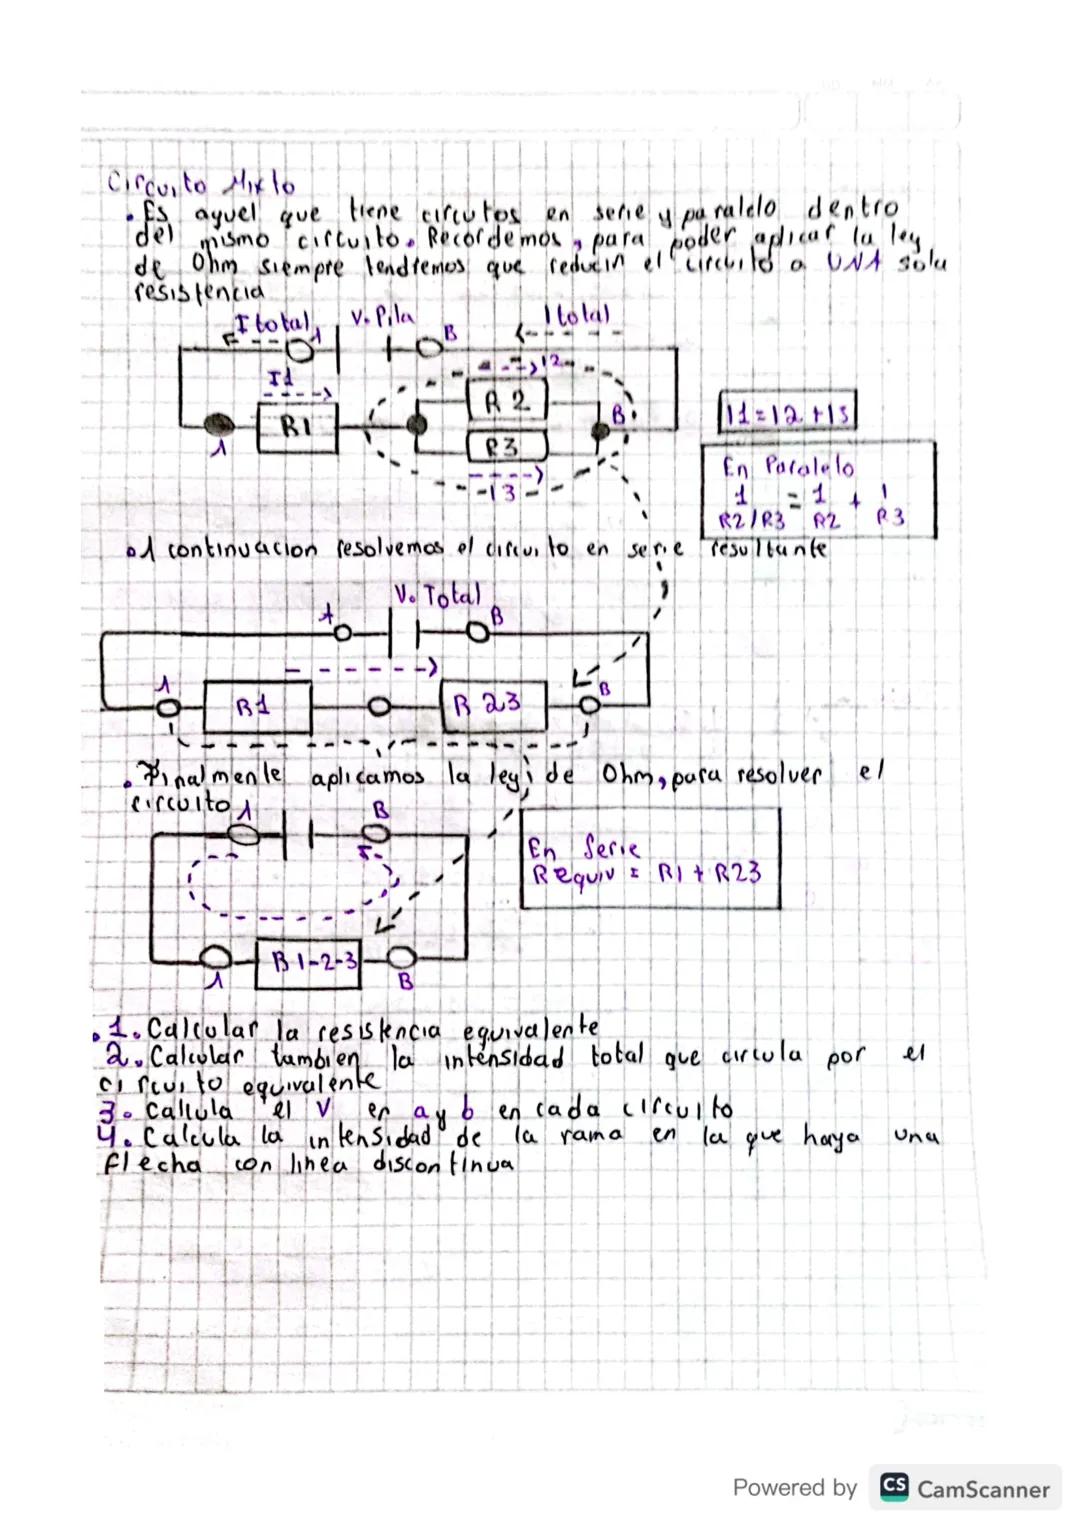 Circuito Mixto
• Es aquel que tiene circutos en serie y paralelo dentro
del mismo circuito. Recordemos, para poder aplicar la ley
de Ohm siempre tendremos que reducin el circuito a UNA sola
resistencia
I total A V. Pila B I total
I1 I2
R1 R2 B
A R3
I3
I1 = I2 + I3
En Paralelo
1 = 1 + 1
R2/R3 R2 R3
• A continuacion resolvemos el circuito en serie resultante
V. Total
A B
A R1 R 23 B
• Finalmente aplicamos la ley de Ohm, para resolver el
circuito
A B
En Serie
Requiv = R1 + R23
R 1-2-3
A B
• 1. Calcular la resistencia equivalente
2. Calcular tambien la intensidad total que circula por el
circuito equivalente
3. Calcula el V en a y b en cada circuito
4. Calcula la intensidad de la rama en la que haya una
flecha con linea discontinua
Powered by CS CamScanner